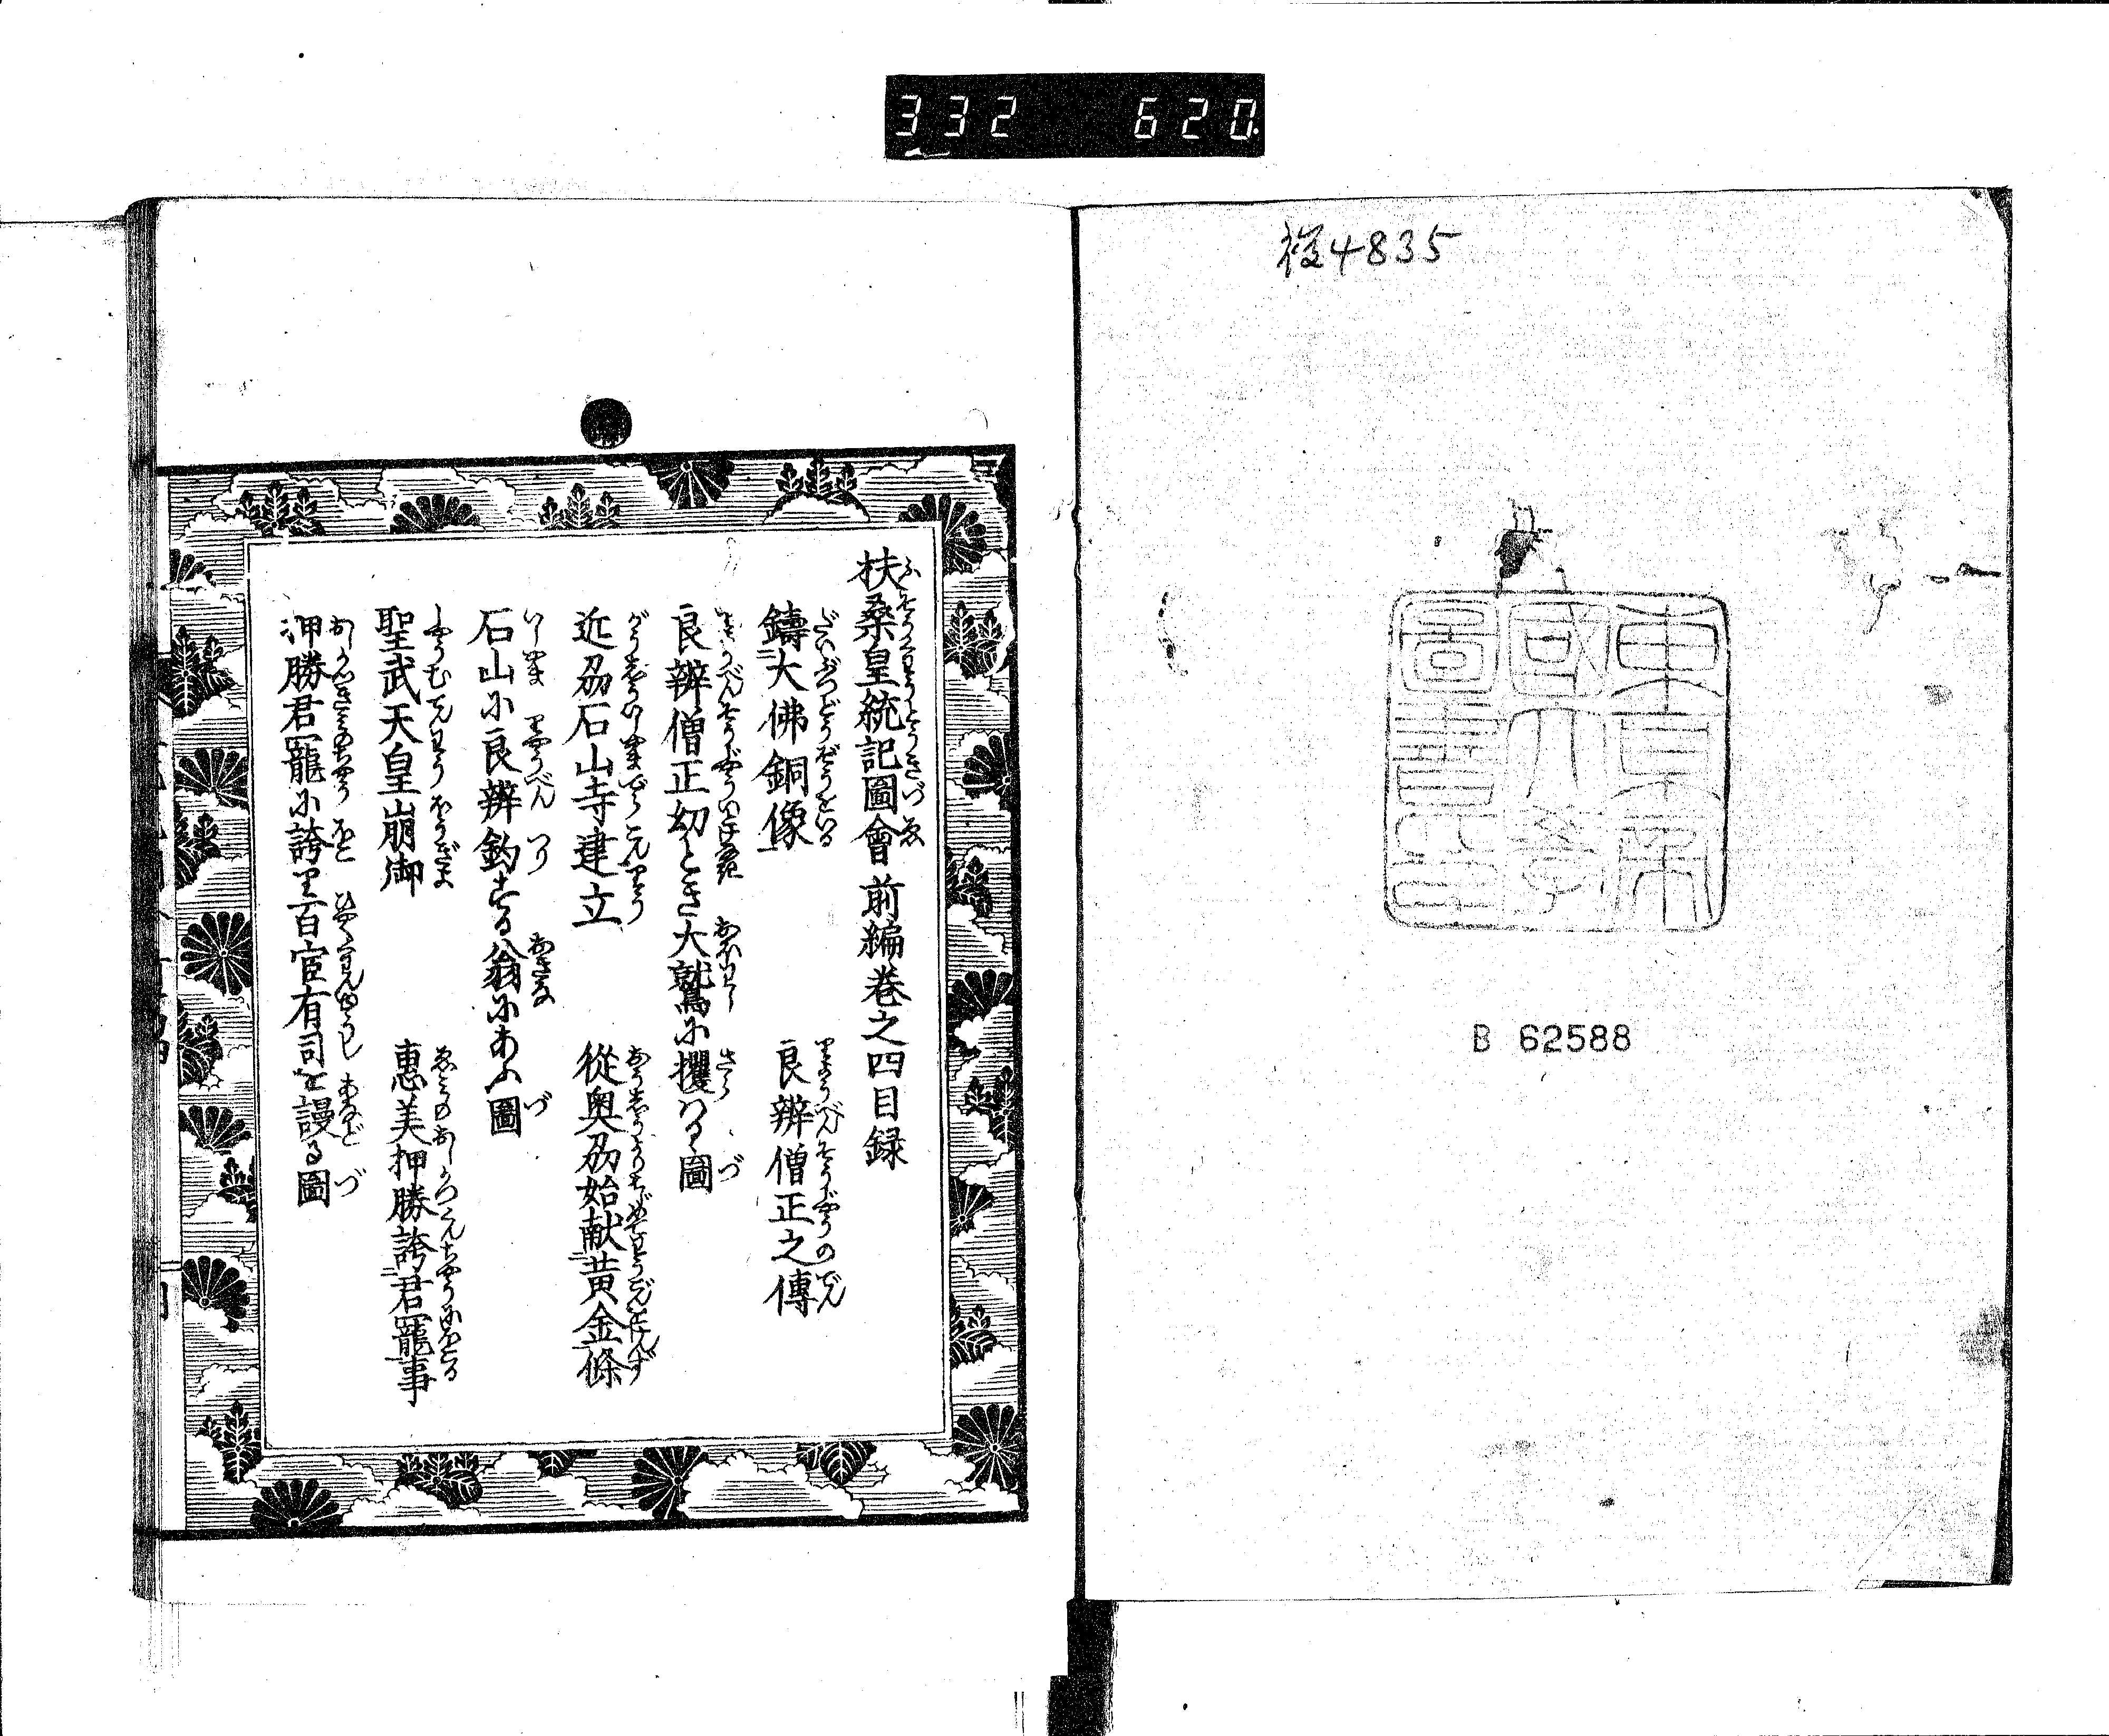 332 620.
複4835
東京帝
國大學
圖書印
B 62588
扶桑皇統記圖會前編巻之四目録
鑄大佛銅像 良辨僧正之傳
良辨僧正幼とき大鷲に攫るゝ圖
近刕石山寺建立 從奥刕始献黄金條
石山に良辨釣する翁にあふ圖
聖武天皇崩御 惠美押勝誇君寵事
押勝君寵に誇り百官有司を謾る圖